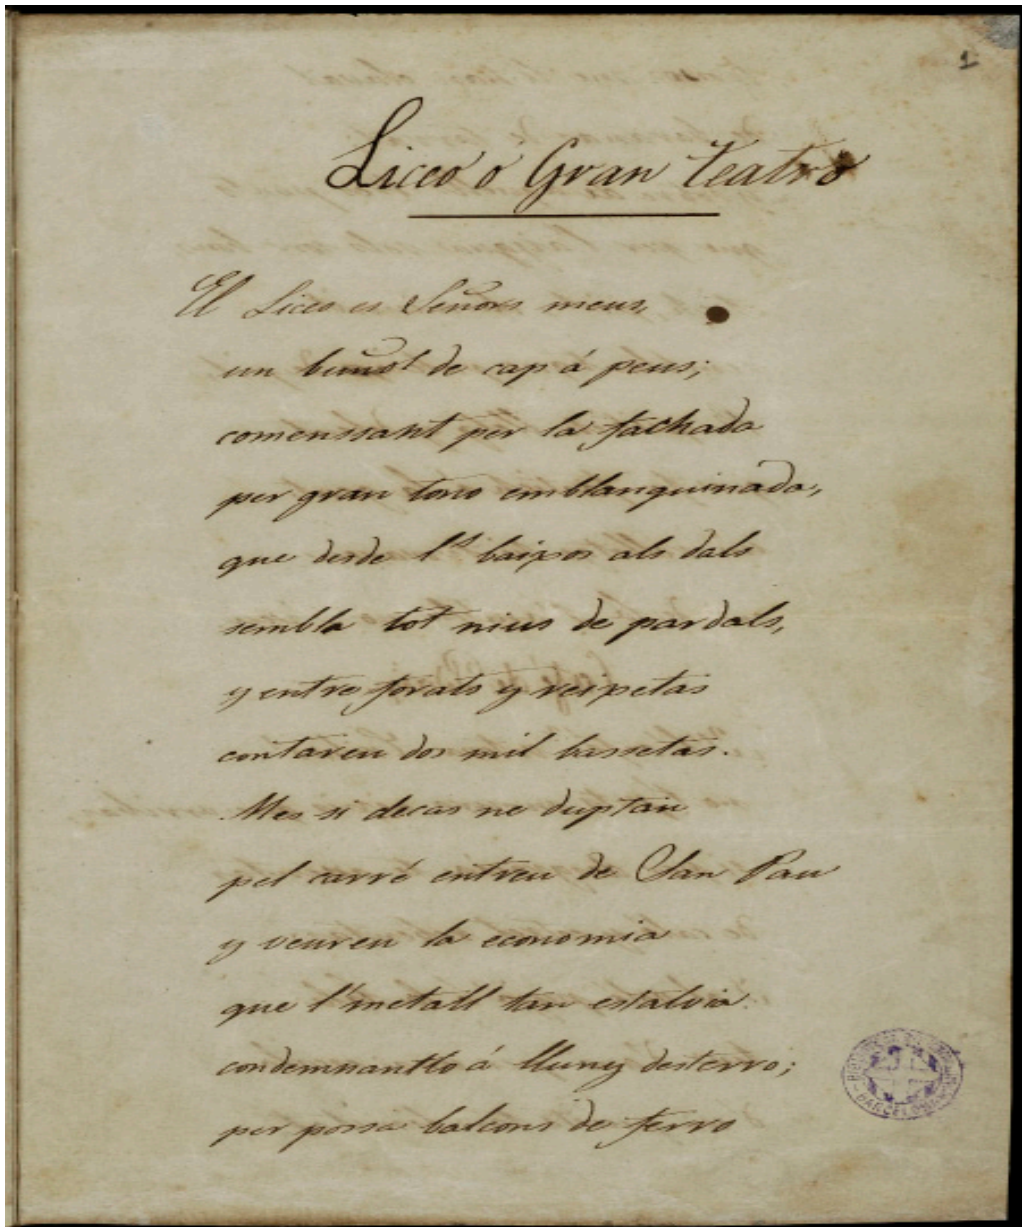 1
Liceo ó Gran teatro
El Liceo es Señors meus,
un buñol de cap á peus;
comenssant per la fachada
per gran tono emblanquinada,
que desde ls baixos als dals
sembla tot nius de pardals,
y entre forats y respetas
contareu dos mil bassetas.
Mes si decas ne duptau
pel carré entreu de San Pau
y veureu la economia
que l'metall tan estalvia
condemnantlo á lluny desterro;
per possa balcons de ferro
BARCELONA